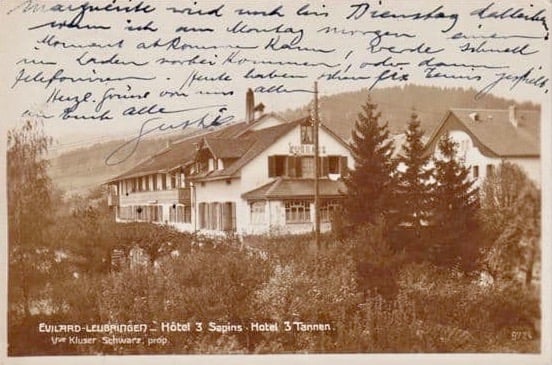 Marguerite wird noch bis Dienstag dableiben
wenn ich am Montag morgen einen
Moment abkommen kann, werde schnell
im Laden vorbei kommen, oder dann
telefonieren. Heute haben schon fix Tennis gespielt,
Herzl. Grüsse von uns allen
an Euch alle
EVILARD-LEUBRINGEN – Hôtel 3 Sapins · Hotel 3 Tannen
Vve Kluser-Schwarz, prop.